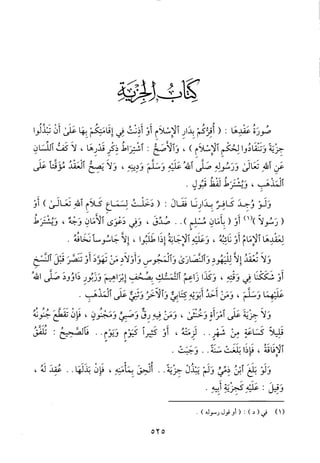 كتاب الجزية
صورة عقدها : ( أقركم بدار الإسلام أو أذنت في إقامتكم بها على أن تبذلوا
جزية وتنقادوا لحكم الإسلام ) ، والأصح : اشتراط ذكر قدرها ، لا كف اللسان
عن الله تعالى ورسوله صلى الله عليه وسلم ودينه ، ولا يصح العقد مؤقتا على
المذهب ، ويشترط لفظ قبول .
ولو وجد كافر بدارنا فقال : ( دخلت لسماع كلام الله تعالى ) أو
( رسولا )(١) أو ( بأمان مسلم ) .. صدق ، وفي دعوى الأمان وجه ، ويشترط
لعقدها الإمام أو نائبه ، وعليه الإجابة إذا طلبوا ، إلا جاسوسا نخافه .
ولا تعقد إلا لليهود والنصارى والمجوس وأولاد من تهود أو تنصر قبل النسخ
أو شككنا في وقته ، وكذا زاعم التمسك بصحف إبراهيم وزبور داوود صلى الله
عليهما وسلم ، ومن أحد أبويه كتابي والآخر وثني على المذهب .
ولا جزية على امرأة وخنثى ، ومن فيه رق وصبي ومجنون ، فإن تقطع جنونه
قليلا كساعة من شهر .. لزمته ، أو كثيرا كيوم ويوم .. فالأصح : تلفق
الإفاقة ، فإذا بلغت سنة .. وجبت .
ولو بلغ ابن ذمي ولم يبذل جزية .. ألحق بمأمنه ، فإن بذلها .. عقد له ،
وقيل : عليه كجزية أبيه .
(١) في ( د ) : ( أو قول رسوله ) .
٥٢٥